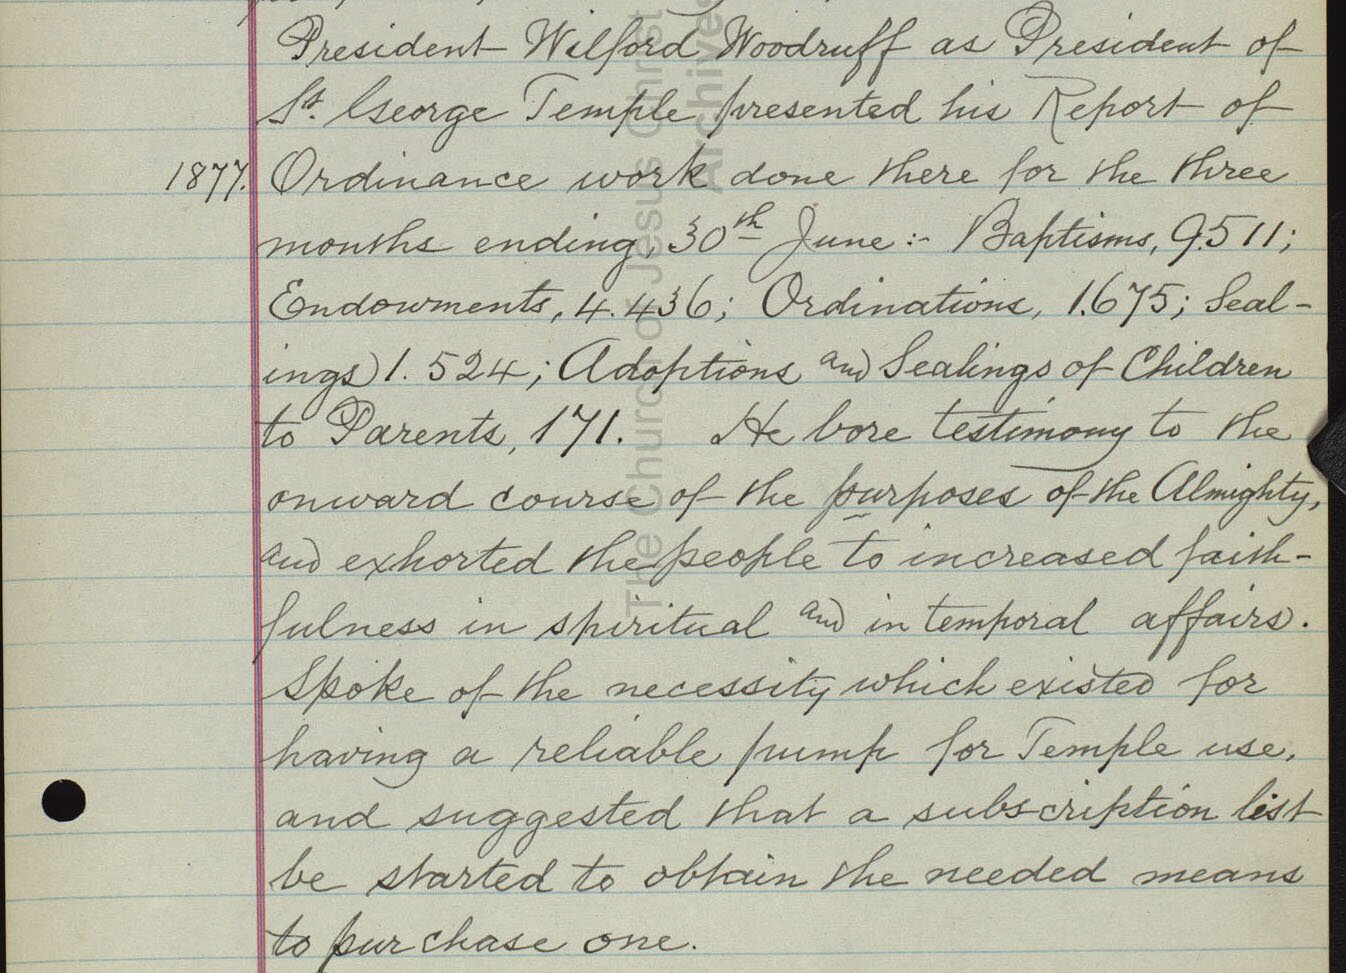 President Wilford Woodruff as President of
St. George Temple presented his Report of
1877. Ordinance work done there for the three
months ending, 30th June :- Baptisms, 9.511;
Endowments, 4.436; Ordinations, 1.675; Seal-
ings) 1.524; Adoptions and Sealings of Children
to Parents, 171. He bore testimony to the
onward course of the purposes of the Almighty,
and exhorted the people to increased faith-
fulness in spiritual and in temporal affairs.
Spoke of the necessity which existed for
having a reliable pump for Temple use,
and suggested that a subscription list
be started to obtain the needed means
to purchase one.
The Church of Jesus Christ
Archives